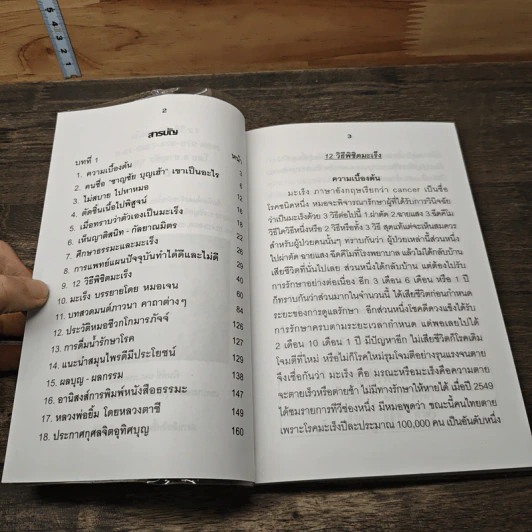 2
สารบัญ
บทที่ 1 หน้า
1. ความเบื้องต้น 3
2. คนชื่อ "ชาญชัย บุญเฮ้า" เขาเป็นอะไร 6
3. ไม่สบาย ไปหาหมอ 12
4. ตัดชิ้นเนื้อไปพิสูจน์ 16
5. เมื่อทราบว่าตัวเองเป็นมะเร็ง 16
6. เห็นญาติสนิท - กัลยาณมิตร 18
7. ศึกษาธรรมะและมะเร็ง
8. การแพทย์แผนปัจจุบันทำได้ดีและไม่ดี
9. 12 วิธีพิชิตมะเร็ง
10. มะเร็ง บรรยายโดย หมอเจน
11. บทสวดมนต์ภาวนา คาถาต่างๆ
12. ประวัติหมอชีวกโกมารภัจจ์ 84
13. การดื่มน้ำรักษาโรค 126
14. แนะนำสมุนไพรดีมีประโยชน์ 129
15. ผลบุญ - ผลกรรม 138
16. อานิสงส์การพิมพ์หนังสือธรรมะ 147
17. หลวงพ่อยิ้ม โดยหลวงตาชี 149
18. ประกาศกุศลจิตอุทิศบุญ 160
3
12 วิธีพิชิตมะเร็ง
ความเบื้องต้น
มะเร็ง ภาษาอังกฤษเรียกว่า cancer เป็นชื่อ
โรคชนิดหนึ่ง หมอจะพิจารณารักษาผู้ที่ได้รับการวินิจฉัย
ว่าเป็นมะเร็งด้วย 3 วิธี ต่อไปนี้ 1.ผ่าตัด 2.ฉายแสง 3.ฉีดคีโม
วิธีใดวิธีหนึ่งหรือ 2 วิธีหรือทั้ง 3 วิธี สุดแท้แต่จะเห็นสมควร
สำหรับผู้ป่วยคนนั้นๆ ทราบกันว่า ผู้ป่วยเหล่านี้ส่วนหนึ่ง
ไปผ่าตัด ฉายแสง ฉีดคีโมที่โรงพยาบาล แล้วไม่ได้กลับบ้าน
เสียชีวิตที่นั่นไปเลย ส่วนหนึ่งได้กลับบ้าน แต่ต้องไปรับ
การรักษาอย่างต่อเนื่อง อีก 3 เดือน 6 เดือน หรือ 1 ปี
ก็ทราบกันว่าส่วนมากในจำนวนนี้ ได้เสียชีวิตก่อนกำหนด
ระยะของการดูแลรักษา อีกส่วนหนึ่งโชคดีดวงแข็งได้รับ
การรักษาครบตามระยะเวลากำหนด แต่พอเลยไปได้
2 เดือน 10 เดือน 1 ปี มีปัญหาอีก ไม่เสียชีวิตก็โรคเดิม
โจมตีที่ใหม่ หรือไม่ก็โรคใหม่รุมโจมตีอย่างรุนแรงจนตาย
จึงเชื่อกันว่า มะเร็ง คือ มรณะหรือมะเร็งคือความตาย
จะตายเร็วหรือตายช้า ไม่มีทางรักษาให้หายได้ เมื่อปี 2549
ได้ชมรายการทีวีช่องหนึ่ง มีหมอพูดว่า ขณะนี้คนไทยตาย
เพราะโรคมะเร็งปีละประมาณ 100,000 คน เป็นอันดับหนึ่ง